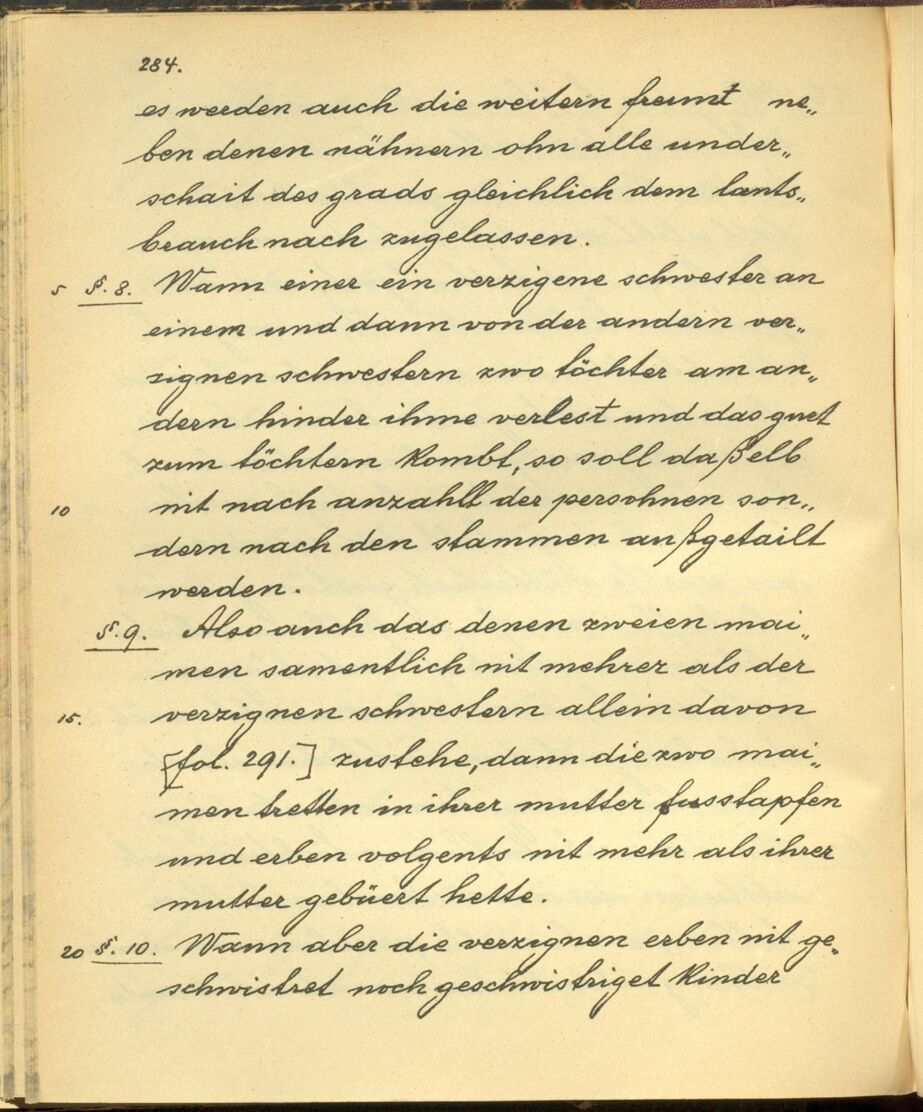 284.
es werden auch die weitern freunt ne„
ben denen nähnern ohn alle under„
schait des grads gleichlich dem lants„
brauch nach zugelassen.
5 §. 8. Wann einer ein verzigene schwester an
einem und dann von der andern ver„
zignen schwestern zwo töchter am an„
dern hinder ihme verlest und das guet
zum töchtern kombt, so soll daßelb
10 nit nach anzahll der persohnen son„
dern nach den stammen außgetailt
werden.
§. 9. Also auch das denen zweien mai„
men samentlich nit mehrer als der
15. verzignen schwestern allein davon
[fol. 291.] zustehe, dann die zwo mai„
men tretten in ihrer mutter fusstapfen
und erben volgents nit mehr als ihrer
mutter gebüert hette.
20 §. 10. Wann aber die verzignen erben nit ge„
schwistret noch geschwistriget kinder